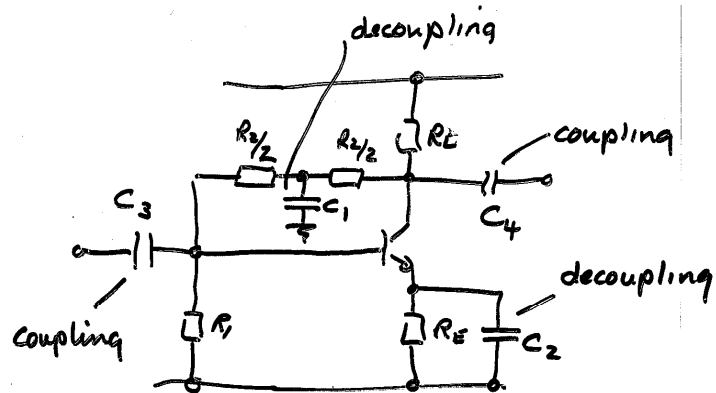 decoupling
R2/2
R2/2
RL
coupling
C3
C1
C4
decoupling
coupling
R1
RE
C2